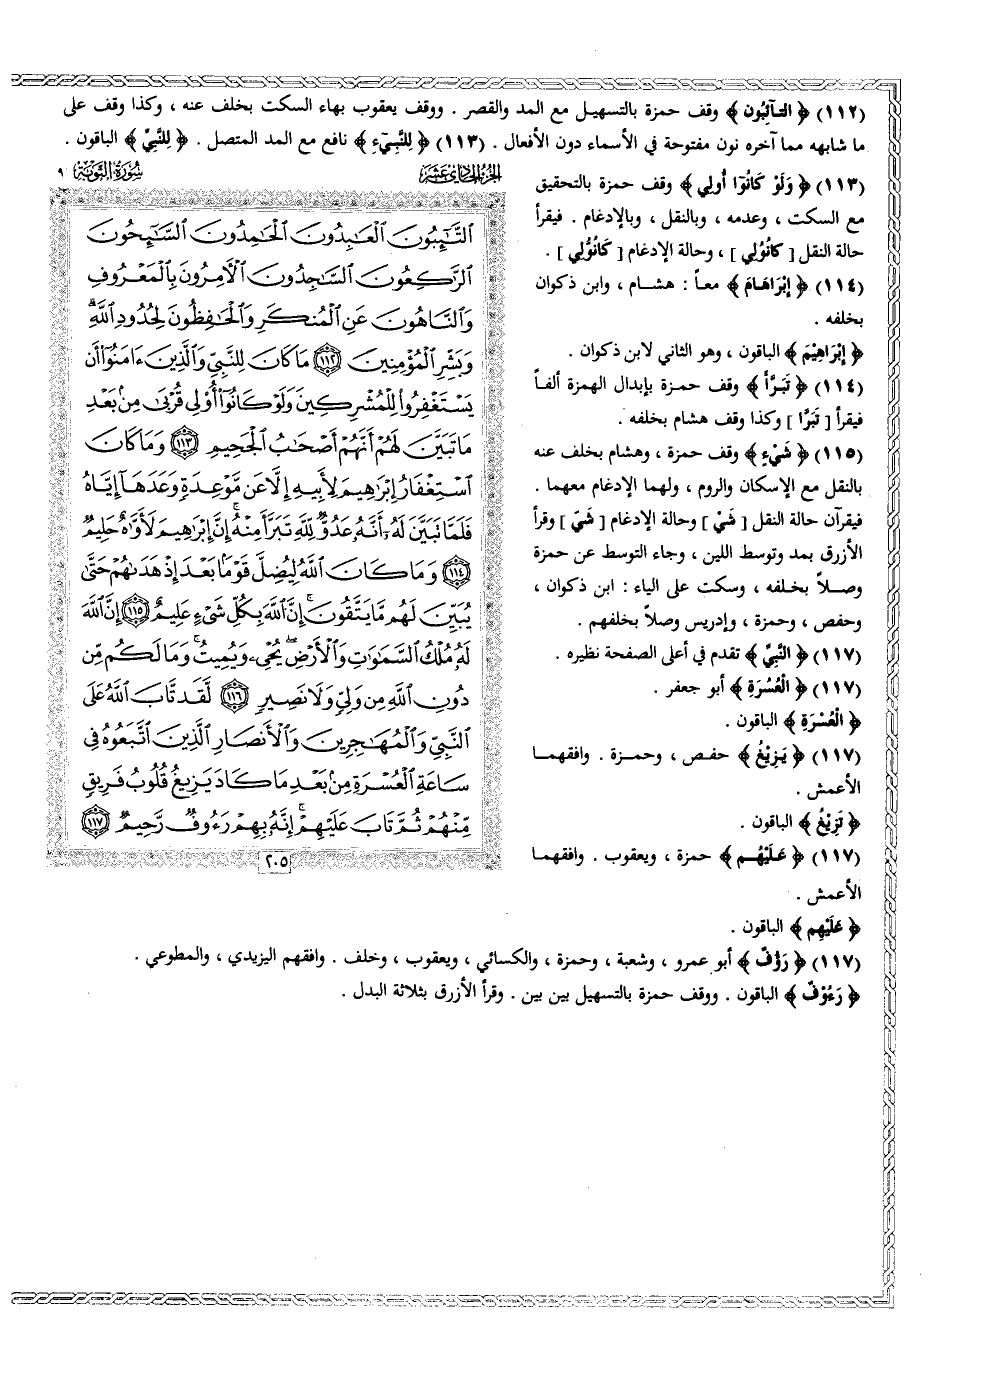 (١١٢) ﴿ التـآئِبُون ﴾ وقف حمزة بالتسهيل مع المد والقصر . ووقف يعقوب بهاء السكت بخلف عنه ، وكذا وقف على
ما شابهه مما آخره نون مفتوحة في الأسماء دون الأفعال . (١١٣) ﴿ لِلنَّبِيۤءِ ﴾ نافع مع المد المتصل . ﴿ لِلنَّبِيِّ ﴾ الباقون .
الجزء الحادي عشر
سورة التوبة ٩
(١١٣) ﴿ وَلَوْ كَانُوٓا أُولِي ﴾ وقف حمزة بالتحقيق
مع السكت ، وعدمه ، وبالنقل ، وبالإدغام . فيقرأ
حالة النقل [ كَانُوُلِي ] ، وحالة الإدغام [ كَانُوُّلِي ] .
(١١٤) ﴿ إِبْرَاهَـامَ ﴾ معاً : هشـام ، وابن ذكوان
بخلفه .
﴿ إِبْرَاهِيْمَ ﴾ الباقون ، وهو الثاني لابن ذكوان .
(١١٤) ﴿ تَبَـرَّأَ ﴾ وقف حمـزة بإبدال الهمزة ألفـاً
فيقرأ [ تَبَرَّا ] وكذا وقف هشام بخلفه .
(١١٥) ﴿ شَيْءٍ ﴾ وقف حمزة ، وهشام بخلف عنه
بالنقل مع الإسكان والروم ، ولهما الإدغام معهما .
فيقرآن حالة النقل [ شَيْ ] وحالة الإدغام [ شَيّ ] وقرأ
الأزرق بمد وتوسط اللين ، وجاء التوسط عن حمزة
وصـلاً بخـلفه ، وسكت على الياء : ابن ذكوان ،
وحفص ، وحمزة ، وإدريس وصلاً بخلفهم .
(١١٧) ﴿ النَّبِيِّ ﴾ تقدم في أعلى الصفحة نظيره .
(١١٧) ﴿ الْعُسُرَةِ ﴾ أبو جعفر .
﴿ الْعُسْرَةِ ﴾ الباقون .
(١١٧) ﴿ يَـزِيْغُ ﴾ حفـص ، وحمـزة . وافقهمـا
الأعمش .
﴿ تَزِيْغُ ﴾ الباقون .
(١١٧) ﴿ عَـلَيْهُـم ﴾ حمزة ، ويعقوب . وافقهمـا
الأعمش .
﴿ عَلَيْهِم ﴾ الباقون .
(١١٧) ﴿ رَؤُفٌ ﴾ أبو عمرو ، وشعبة ، وحمزة ، والكسائي ، ويعقوب ، وخلف . وافقهم اليزيدي ، والمطوعي .
﴿ رَءُوْفٌ ﴾ الباقون . ووقف حمزة بالتسهيل بين بين . وقرأ الأزرق بثلاثة البدل .
ٱلتَّـٰٓئِبُونَ ٱلۡعَـٰبِدُونَ ٱلۡحَـٰمِدُونَ ٱلسَّـٰٓئِحُونَ
ٱلرَّٰكِعُونَ ٱلسَّـٰجِدُونَ ٱلۡأٓمِرُونَ بِٱلۡمَعۡرُوفِ
وَٱلنَّاهُونَ عَنِ ٱلۡمُنكَرِ وَٱلۡحَـٰفِظُونَ لِحُدُودِ ٱللَّهِۗ
وَبَشِّرِ ٱلۡمُؤۡمِنِينَ ١١٢ مَا كَانَ لِلنَّبِيِّ وَٱلَّذِينَ ءَامَنُوٓاْ أَن
يَسۡتَغۡفِرُواْ لِلۡمُشۡرِكِينَ وَلَوۡ كَانُوٓاْ أُوْلِي قُرۡبَىٰ مِنۢ بَعۡدِ
مَا تَبَيَّنَ لَهُمۡ أَنَّهُمۡ أَصۡحَـٰبُ ٱلۡجَحِيمِ ١١٣ وَمَا كَانَ
ٱسۡتِغۡفَارُ إِبۡرَٰهِيمَ لِأَبِيهِ إِلَّا عَن مَّوۡعِدَةٖ وَعَدَهَآ إِيَّاهُ
فَلَمَّا تَبَيَّنَ لَهُۥٓ أَنَّهُۥ عَدُوّٞ لِّلَّهِ تَبَرَّأَ مِنۡهُۚ إِنَّ إِبۡرَٰهِيمَ لَأَوَّٰهٌ حَلِيمٞ
١١٤ وَمَا كَانَ ٱللَّهُ لِيُضِلَّ قَوۡمَۢا بَعۡدَ إِذۡ هَدَىٰهُمۡ حَتَّىٰ
يُبَيِّنَ لَهُم مَّا يَتَّقُونَۚ إِنَّ ٱللَّهَ بِكُلِّ شَيۡءٍ عَلِيمٌ ١١٥ إِنَّ ٱللَّهَ
لَهُۥ مُلۡكُ ٱلسَّمَـٰوَٰتِ وَٱلۡأَرۡضِۖ يُحۡيِۦ وَيُمِيتُۚ وَمَا لَكُم مِّن
دُونِ ٱللَّهِ مِن وَلِيّٖ وَلَا نَصِيرٖ ١١٦ لَّقَد تَّابَ ٱللَّهُ عَلَى
ٱلنَّبِيِّ وَٱلۡمُهَـٰجِرِينَ وَٱلۡأَنصَارِ ٱلَّذِينَ ٱتَّبَعُوهُ فِي
سَاعَةِ ٱلۡعُسۡرَةِ مِنۢ بَعۡدِ مَا كَادَ يَزِيغُ قُلُوبُ فَرِيقٖ
مِّنۡهُمۡ ثُمَّ تَابَ عَلَيۡهِمۡۚ إِنَّهُۥ بِهِمۡ رَءُوفٞ رَّحِيمٞ ١١٧
٢٠٥